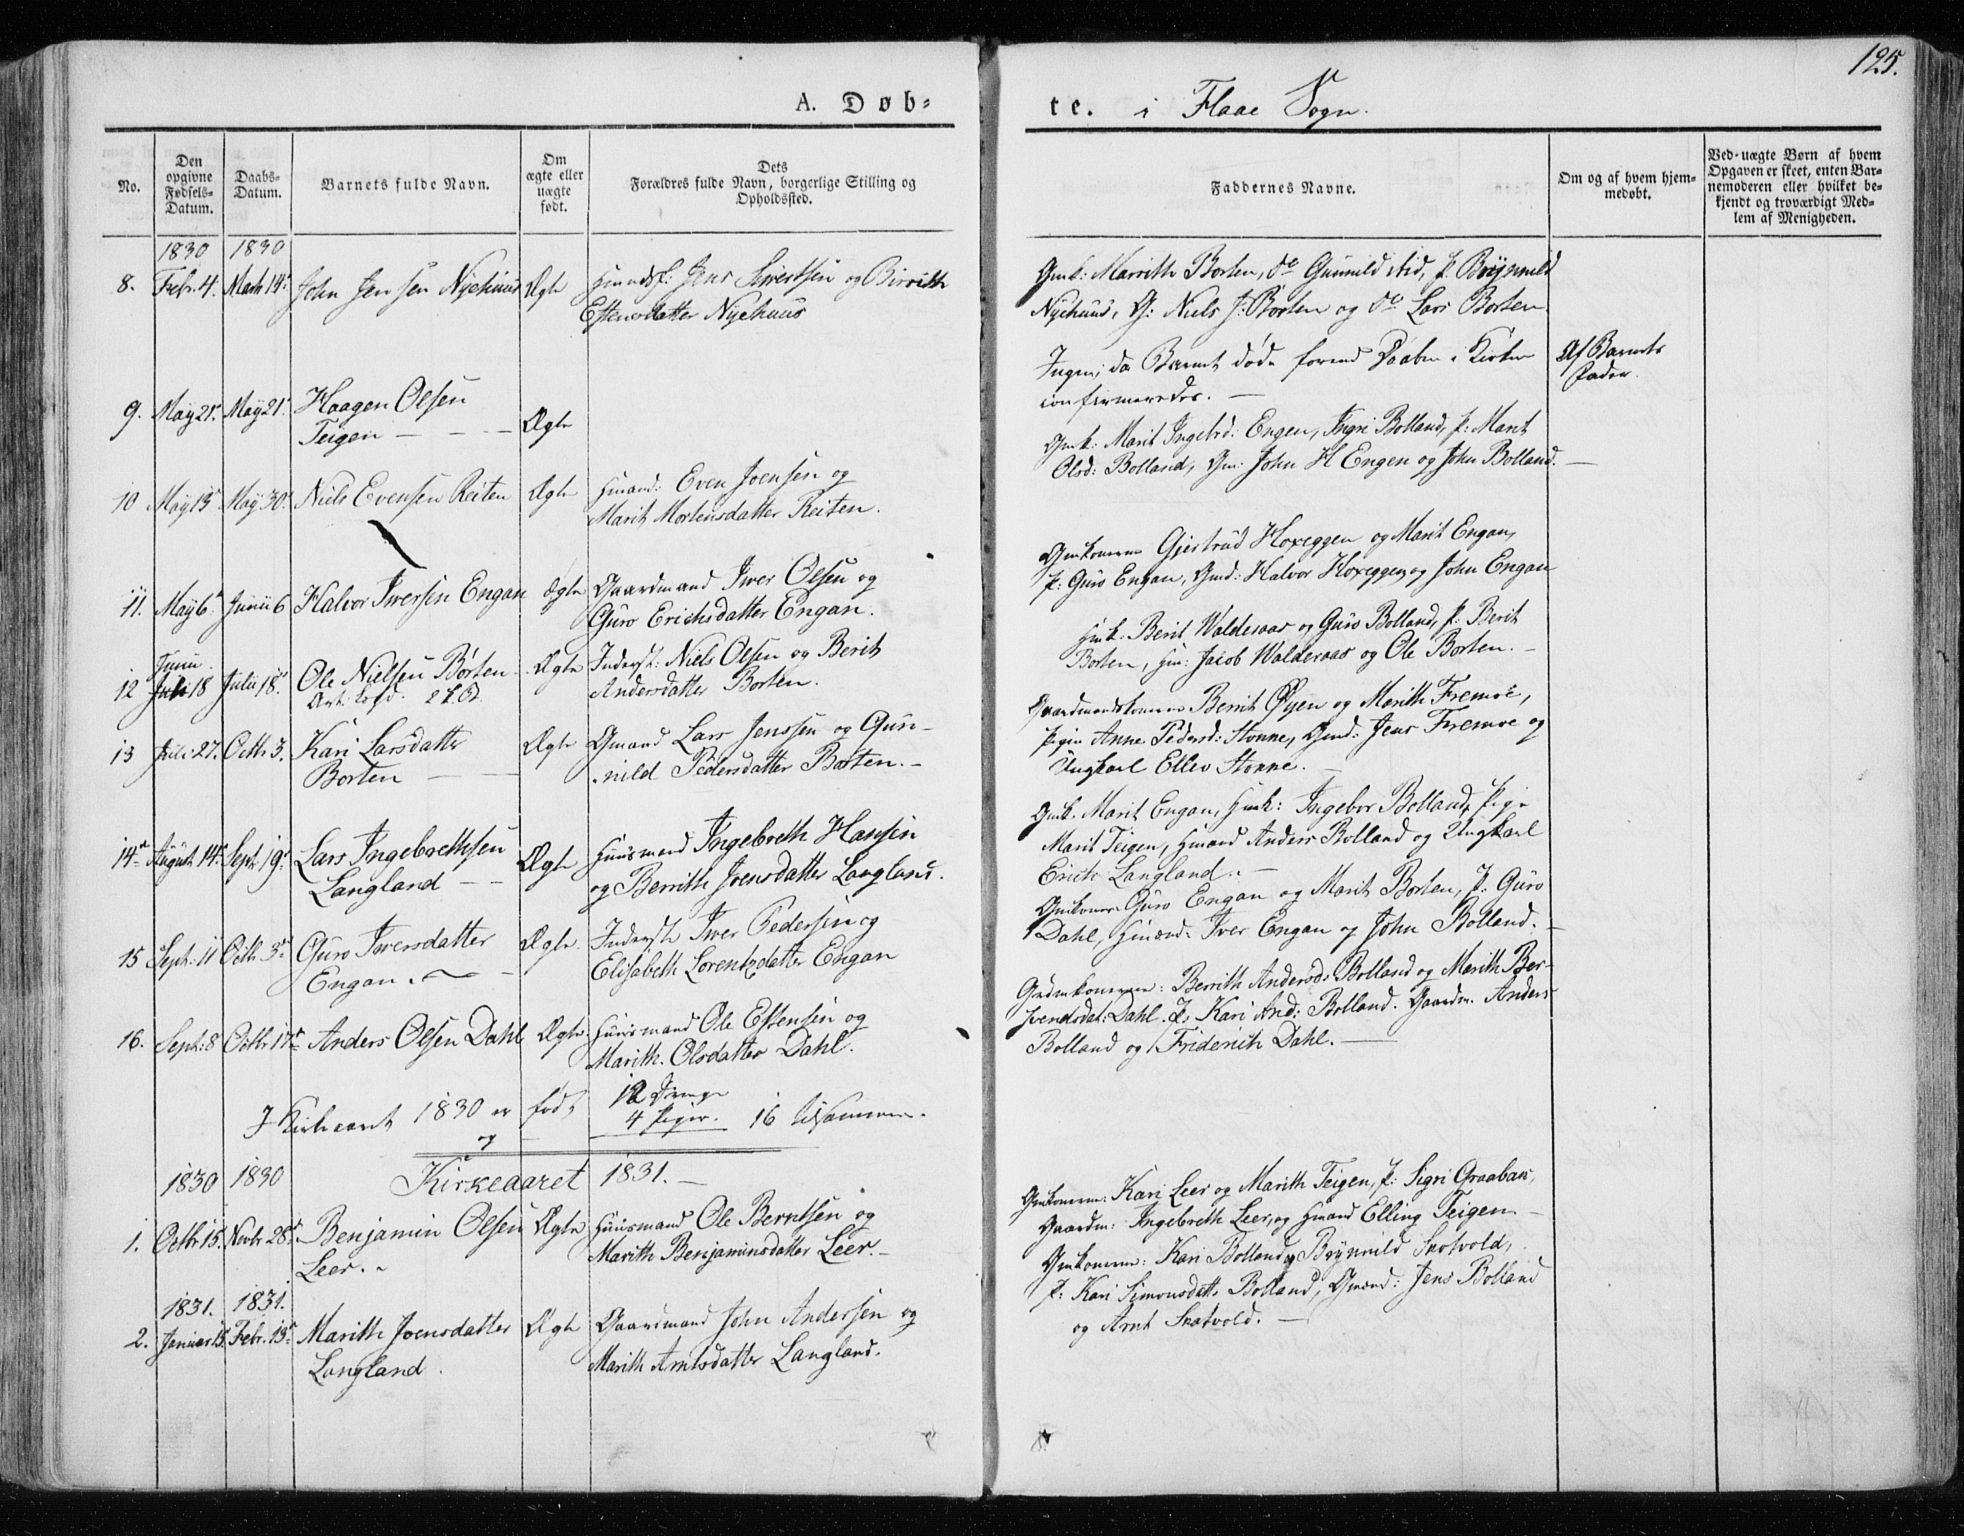 125.
A. Døb-
te. i Flaae Sogn.
No.
Den opgivne Fødsels-Datum.
Daabs-Datum.
Barnets fulde Navn.
Om ægte eller uægte født.
Dets Forældres fulde Navn, borgerlige Stilling og Opholdssted.
Faddernes Navne.
Om og af hvem hjem-medøbt.
Ved uægte Børn af hvem Opgaven er skeet, enten Bar-nemoderen eller hvilket be-kjendt og troværdigt Med-lem af Menigheden.
1830 1830
8. Febr. 4. Marts 14 John Jensen Nyehuus Ægte Huusmd: Jens Sivertsen og Birrith
Estensdatter Nyehuus
Gmk: Marrith Borten, do Gunnild ibid, P. Brynnild
Nyehuus, G: Niels J: Borten og do Lars Borten
9. May 21. May 21. Haagen Olsen
Teigen Ægte
Ingen, da Barnet døde forend Daaben i Kirken
confirmeredes.
Af Barnets
Fader.
10 May 15 May 30. Niels Evensen Reiten Ægte Hmand: Even Joensen og
Marit Mortensdatter Reiten.
Gmk: Marit Ingebrd: Engen, Ingri Bolland, P: Marit
Olsd: Bolland, Gm: John H Engen og John Bolland.
11. May 6. Junii 6 Halvor Iversen Engan ægte Gaardmand Iver Olsen og
Guro Erichsdatter Engan.
Gmkonerne Gjertrud Hoxeggen og Marit Engan,
P: Guro Engan, Gmd: Halvor Hoxeggen og John Engan
12 Junii
Juli 18 Julii 18. Ole Nielsen Borten Ægte Inderst: Niels Olsen og Berit
Andersdatter Borten.
Hmk. Berit Waldesaas og Guro Bolland, P. Berit
Borten, Hm: Jacob Waldersaas og Ole Borten.
13 Juli 27. Octbr 3. Kari Larsdatter
Borten Ægte Gmand Lars Jenssen og Gun-
nild Pedersdatter Borten.
Gaardmandskonerne Berrit Øyen og Marith Fremoe,
Pigen Anne Pedersd: Stonne, Gmd: Jens Fremoe og
Ungkarl Ellev Stonne.
14 August 14 Sept. 19 Lars Ingebrethsen
Langland Ægte Huusmand Ingebreth Hansen
og Berrith Joensdatter Langland.
Gmk. Marit Engan, Hmk: Ingebor Bolland, Pige
Marit Teigen, Hmand Anders Bolland og Ungkarl
Erich Langland.
15 Sept. 11 Octbr 3 Guro Iversdatter
Engan. Ægte Inderste Iver Pedersen og
Elisabeth Lorentzdatter Engan
Gmkoner Guro Engan og Marit Borten, P. Guro
Dahl, Hmænd: Iver Engan og John Bolland.
16. Sept: 8 Octbr 17 Anders Olsen Dahl Ægte Huusmand Ole Estensen og
Marith. Olsdatter Dahl.
Grdmkonerne: Berrith Andersd: Bolland og Marith Ber-
svendsdat: Dahl. P. Kari And: Bolland. Gaardm. Anders
Bolland og Friderich Dahl.
I Kirkeaaret 1830 er fød, 12 Drenge
og 4 Piger. 16 tilsammen.
Kirkeaaret 1831.
1830 1830
1. Octbr 15. Novbr 28. Benjamin Olsen
Leer. Ægte Huusmand Ole Berntsen og
Marith Benjaminsdatter Leer.
Gmkonerne: Kari Leer og Marith Teigen, P: Sigri Graabak,
Gaardm: Ingebreth Leer, og Hmand Elling Teigen.
1831. 1831.
2. Januar 15. Febr. 13 Marith Joensdatter
Langland. Ægte Gaardmand John Andersen og
Marith Arntsdatter Langland.
Gmkonerne: Kari Bolland og Brynnild Skotvold,
P: Kari Simonsdatter Bolland, Gmænd: Jens Bolland
og Arnt Skotvold.